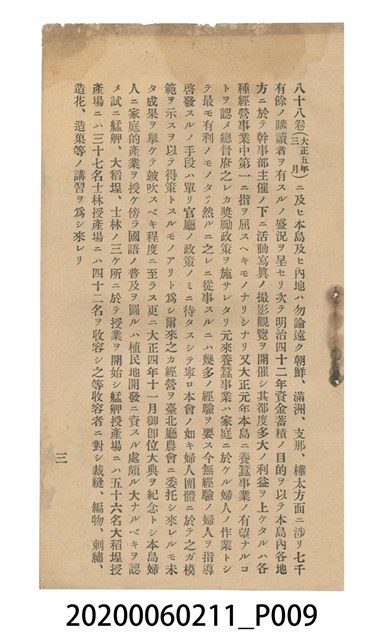 八十八卷(大正五年三月)ニ及ヒ本島及ヒ內地ハ勿論遠ク朝鮮、滿洲、支那、樺太方面ニ涉リ七千
有餘ノ購讀者ヲ有スルノ盛況ヲ呈セリ次テ明治四十二年資金蓄積ノ目的ヲ以テ本島內各地
方ニ於テ幹事部主催ノ下ニ活動寫眞ノ撮影觀覽ヲ開催シ其都度多大ノ利益ヲ上ケタルハ各
種經營事業中第一ニ指ヲ屈スヘキモノナリシナリ又大正元年本島ニ養蠶事業ノ有望ナルコ
トヲ認メ總督府之レカ奬勵政策ヲ施サレタリ元來養蠶事業ハ家庭ニ於ケル婦人ノ作業トシ
テ最モ有利ノモノタリ然ルニ之レニ從事スルニハ幾多ノ經驗ヲ要ス今無經驗ノ婦人ヲ指導
啓發スルノ手段ハ單リ官廳ノ政策ノミニ待タスシテ寧ロ本會ノ如キ婦人團體ニ於テ之カ模
範ヲ示スヲ以テ得策トスルモノアリト爲シ爾來之カ經營ヲ臺北廳農會ニ委托シ來レルモ未
タ成果ヲ擧ケテ鼓吹スヘキ程度ニ至ラス更ニ大正四年十一月御卽位大典ヲ紀念トシ本島婦
人ニ家庭的產業ヲ授ケ傍ラ國語ノ普及ヲ圖ルハ植民地開發ニ資スル處頗ル大ナルヘキヲ認
メ試ニ艋舺、大稻埕、士林ノ三ケ所ニ於テ授業ヲ開始シ艋舺授產場ニハ五十六名大稻埕授
產場ニハ三十七名士林授產場ニハ四十二名ヲ收容シ之等收容者ニ對シ裁縫、編物、刺繡、
造花、造菓等ノ講習ヲ爲シ來レリ
三
20200060211_P009